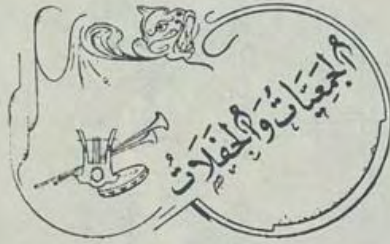 الجمعيَّات والحفَلاتُ